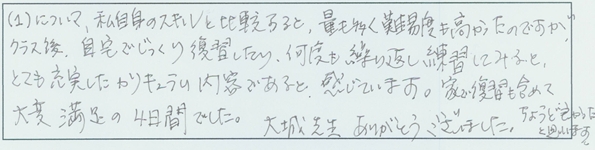 (1)について、私自身のスキルと比較すると、量も多く難易度も高かったのですが、
クラス後、自宅でじっくり復習したり、何度も繰り返し練習してみると、
とても充実したカリキュラム内容であると、感じています。家で復習も含めて
大変満足の4日間でした。大城先生ありがとうございました。
ちょうど良かった
と思います。